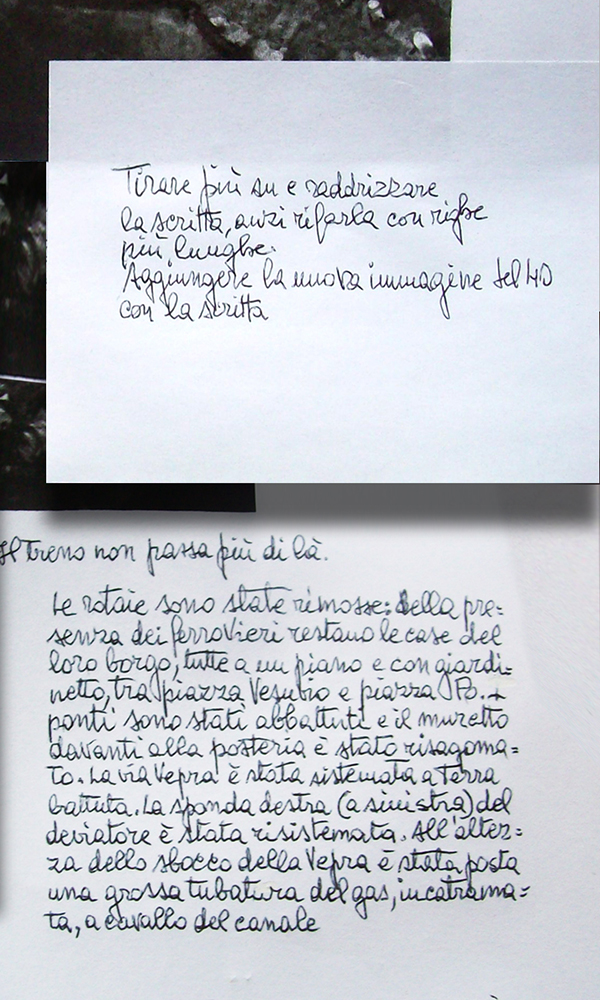 Tirare più su e raddrizzare
la scritta, anzi rifarla con righe
più lunghe.
Aggiungere la nuova immagine del 40
con la scritta
Il treno non passa più di là.
Le rotaie sono state rimosse: della pre=
senza dei ferrovieri restano le case del
loro borgo, tutte a un piano e con giardi=
netto, tra piazza Vesuvio e piazza Po. I
ponti sono stati abbattuti e il muretto
davanti alla posteria è stato risagoma=
to. La via Vepra è stata sistemata a terra
battuta. La sponda destra (a sinistra) del
deviatore è stata risistemata. All'altez=
za dello sbocco della Vepra è stata posta
una grossa tubatura del gas, incatrama=
ta, a cavallo del canale